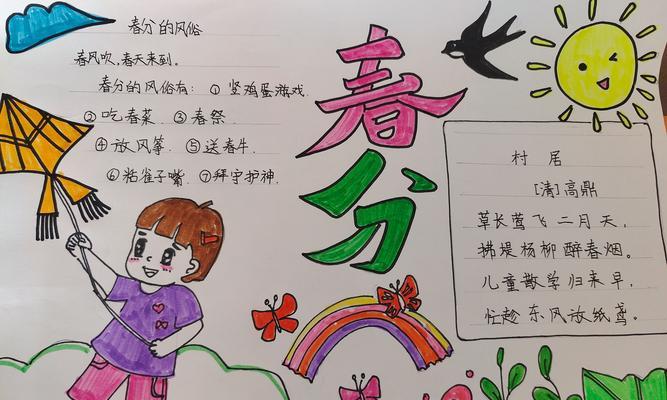 春分的风俗
春风吹,春天来到.
春分的风俗有: ① 竖鸡蛋游戏.
② 吃春菜. ③ 春祭.
④ 放风筝. ⑤ 送春牛.
⑥ 粘雀子嘴. ⑦ 拜守护神.
春分
村居
[清]高鼎
草长莺飞二月天,
拂堤杨柳醉春烟。
儿童散学归来早,
忙趁东风放纸鸢。